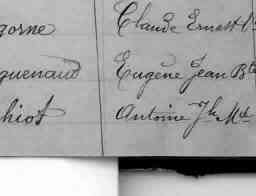 orne Claude Ernest
quenaud Eugène Jean Bte
hiot Antoine Jh Mt